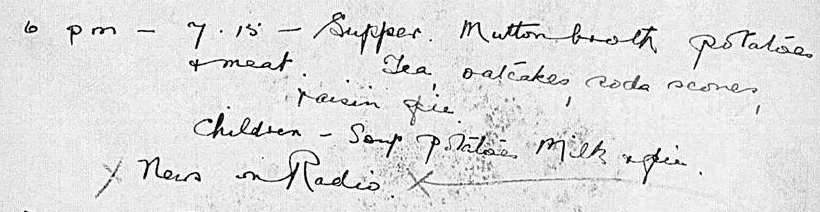 6 pm - 7.15 - Supper. Mutton broth potatoes
& meat. Tea, oatcakes, soda scones,
raisin pie.
Children - Soup potatoes Milk & pie.
X News on Radio. X